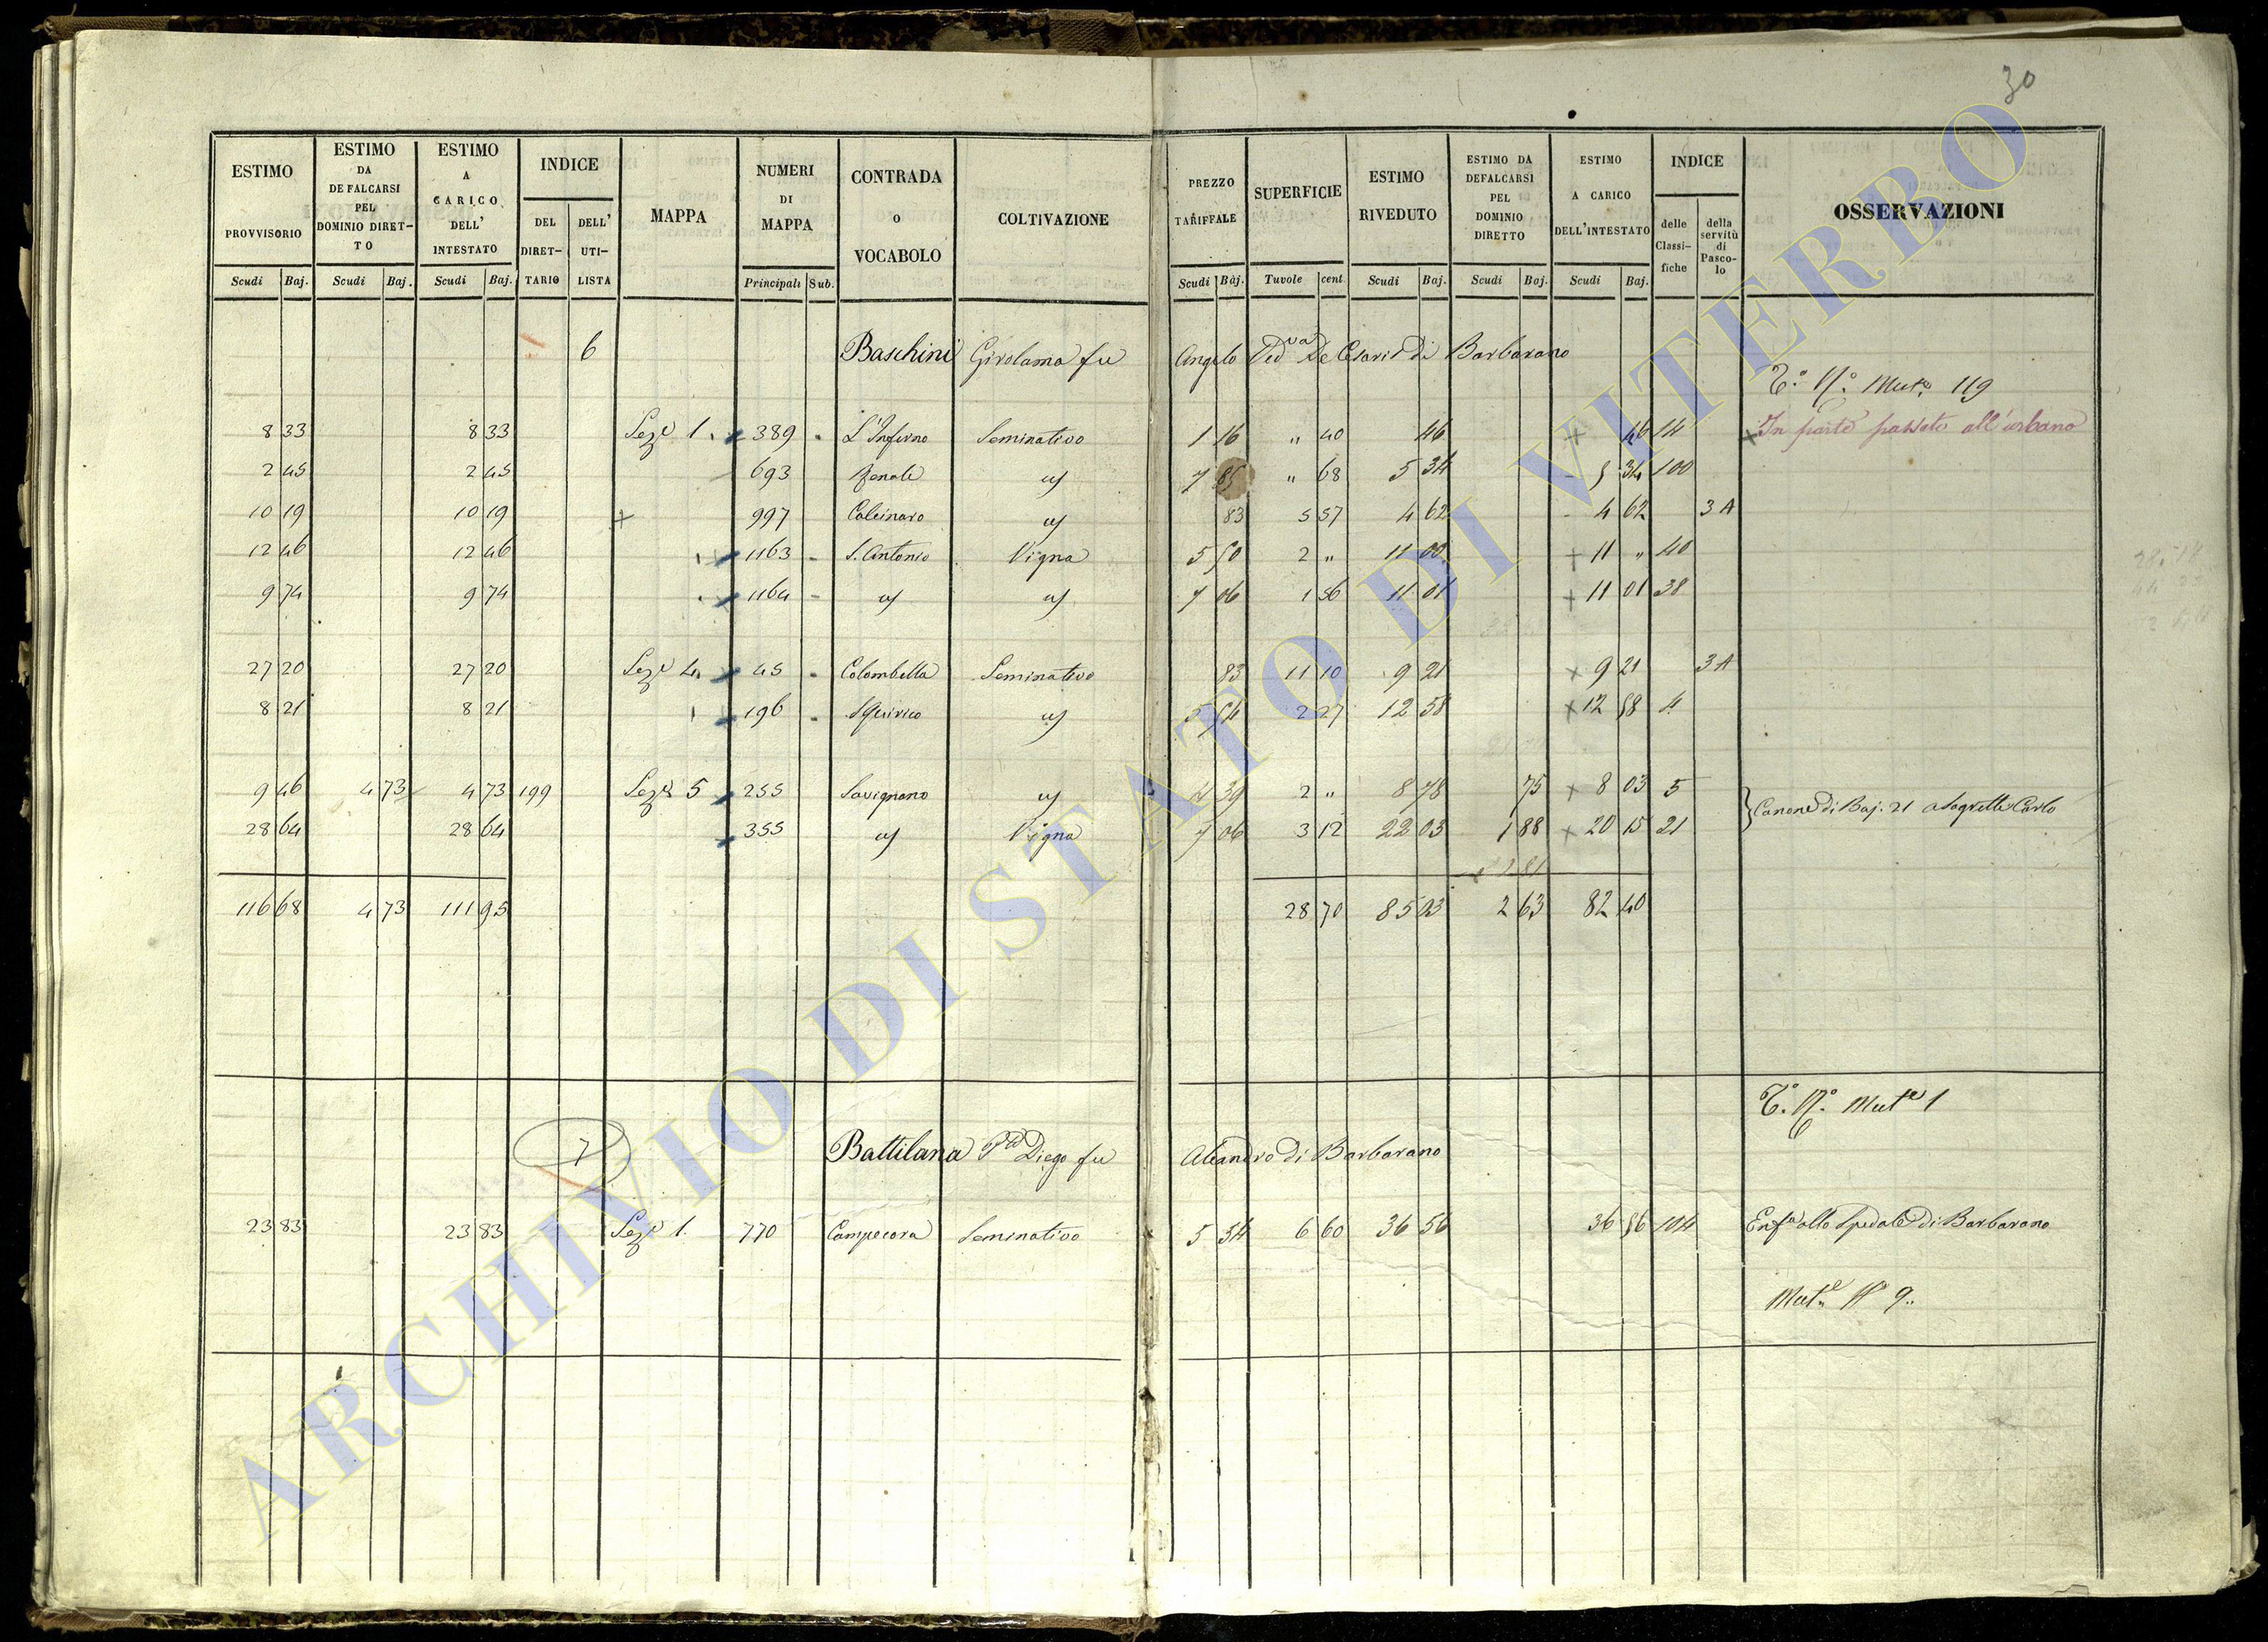 30
ESTIMO PROVVISORIO
ESTIMO DA DEFALCARSI PEL DOMINIO DIRETTO
ESTIMO A CARICO DELL' INTESTATO
INDICE
DEL DIRETTARIO
DELL' UTILISTA
MAPPA
NUMERI DI MAPPA
CONTRADA O VOCABOLO
COLTIVAZIONE
PREZZO TARIFFALE
SUPERFICIE
ESTIMO RIVEDUTO
ESTIMO DA DEFALCARSI PEL DOMINIO DIRETTO
ESTIMO A CARICO DELL' INTESTATO
INDICE
delle Classifiche
della servitù di Pascolo
OSSERVAZIONI
Scudi Baj. Scudi Baj. Scudi Baj. Principali Sub. Scudi Baj. Tavole cent. Scudi Baj. Scudi Baj. Scudi Baj.
6 Baschini Girolama fu Angelo Ved va De Cesaris di Barbarano
T.° N.° Mut.e 119
8 33 8 33 Sez.e 1. 389 L'Inferno Seminativo 1 16 " 40 46 + 46 14 x In parte passato all'urbano
2 45 2 45 693 Zenale 7 85 " 68 5 34 5 34 100
10 19 10 19 + 997 Calcinaro 83 5 57 4 62 4 62 3 A
12 46 12 46 1163 S. Antonio Vigna 5 50 2 " 11 00 + 11 " 40
9 74 9 74 1164 7 06 1 56 11 01 + 11 01 38
27 20 27 20 Sez.e 4. 45 Colombella Seminativo 83 11 10 9 21 x 9 21 3 A
8 21 8 21 196 S Quirico 5 54 2 27 12 58 x 12 58 4
9 46 4 73 4 73 199 Sez.e 5 255 Savignano 4 39 2 " 8 78 75 x 8 03 5
28 64 28 64 355 Vigna 7 06 3 12 22 03 1 88 x 20 15 21
Canone di Baj. 21 a Sagretti Carlo
116 68 4 73 111 95 28 70 85 03 2 63 82 40
T.° N.° Mut.e 1
7 Battilana Diego fu Aleandro di Barbarano
23 83 23 83 Sez.e 1. 770 Campecora Seminativo 5 34 6 60 36 56 36 56 104 Enf.a allo Spedale di Barbarano
Mut.e N° 9.
ARCHIVIO DI STATO DI VITERBO